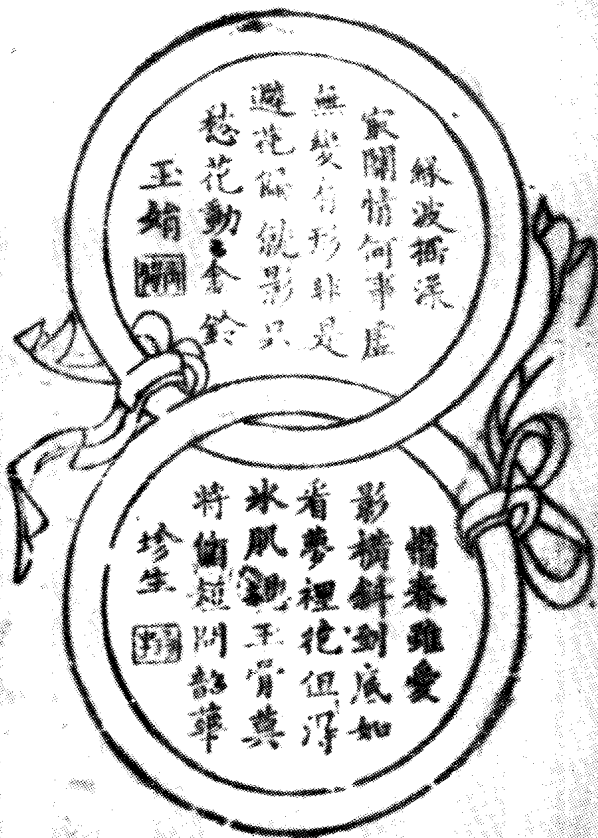 綠波搖漾
㝡關情何事虛
無變有形非是
避花偏就影只
愁花動〻金鈴
玉娟
惜春雖愛
影橫斜到底如
看夢裡花但得
氷肌親玉骨莫
將脩短問韶華
珍生